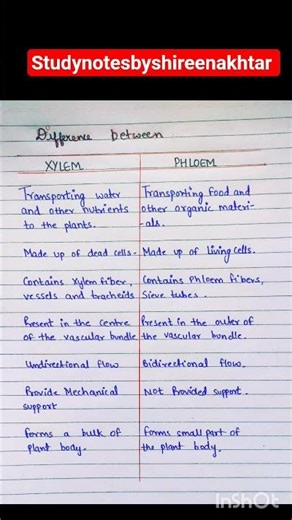 Studynotesbyshireenakhtar
Difference between
XYLEM
PHLOEM
Transporting water
and other nutrients
to the plants.
Transporting food and
other organic materi-
-als.
Made up of dead cells-
Made up of living cells.
Contains xylem fiber,
vessels and tracheids
Contains Phloem fibers,
Sieve tubes.
Present in the centre
of the vascular bundle
Present in the outer of
the vascular bundle.
Undirectional flow
Bidirectional flow.
Provide Mechanical
support
Not Provided support.
Forms a bulk of
plant body.
Forms small part of
the plant body.
InShOt